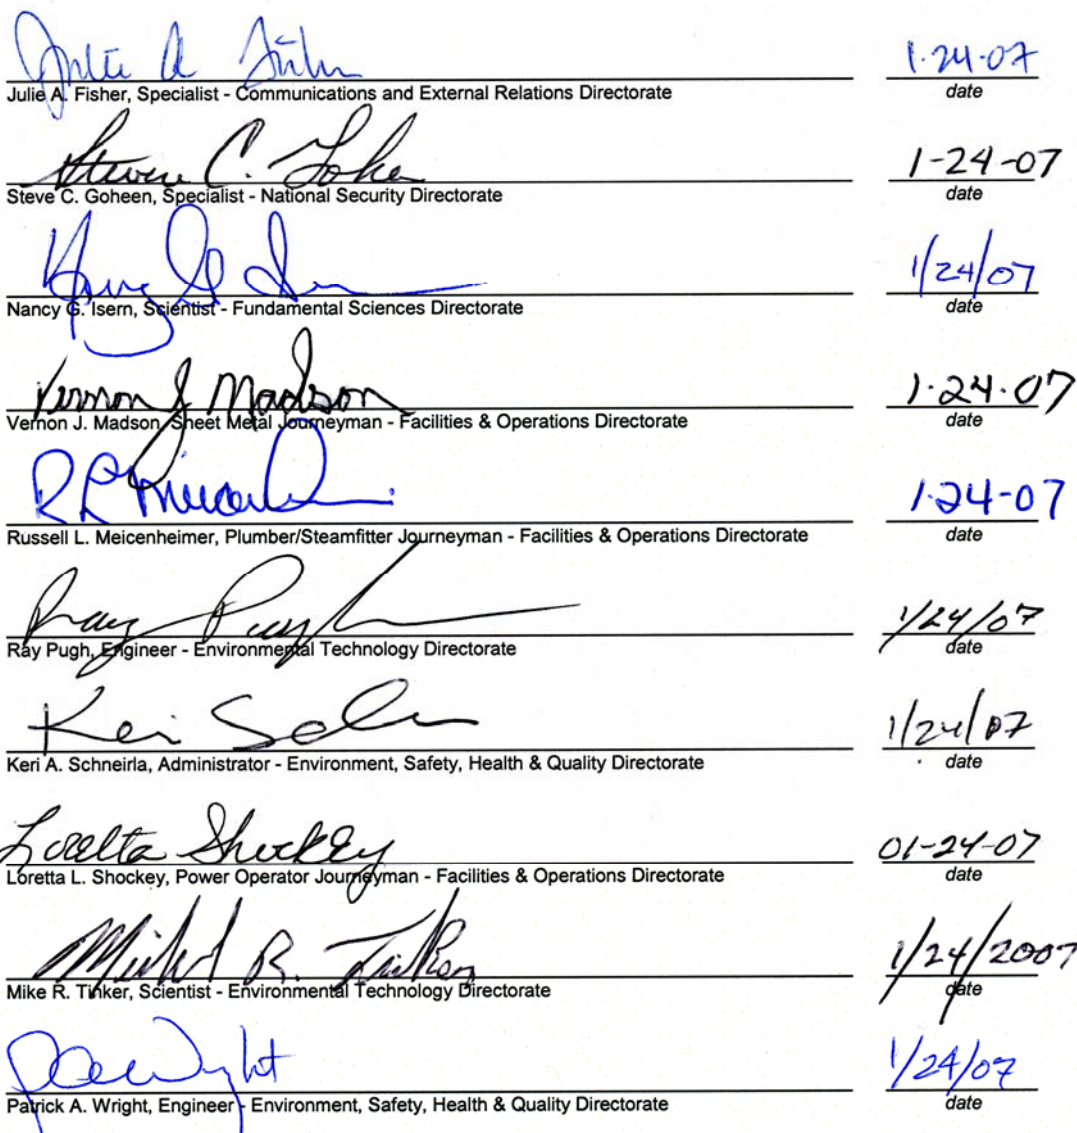 Julie A Fisher 1-24-07
Julie A. Fisher, Specialist - Communications and External Relations Directorate date
Steven C. 1-24-07
Steve C. Goheen, Specialist - National Security Directorate date
Nancy G 1/24/07
Nancy G. Isern, Scientist - Fundamental Sciences Directorate date
Vernon J Madson 1-24-07
Vernon J. Madson, Sheet Metal Journeyman - Facilities & Operations Directorate date
R L 1-24-07
Russell L. Meicenheimer, Plumber/Steamfitter Journeyman - Facilities & Operations Directorate date
Ray Pugh 1/24/07
Ray Pugh, Engineer - Environmental Technology Directorate date
Keri 1/24/07
Keri A. Schneirla, Administrator - Environment, Safety, Health & Quality Directorate date
Loretta Shockley 01-24-07
Loretta L. Shockey, Power Operator Journeyman - Facilities & Operations Directorate date
Michael R. Tinker 1/24/2007
Mike R. Tinker, Scientist - Environmental Technology Directorate date
Wright 1/24/07
Patrick A. Wright, Engineer - Environment, Safety, Health & Quality Directorate date